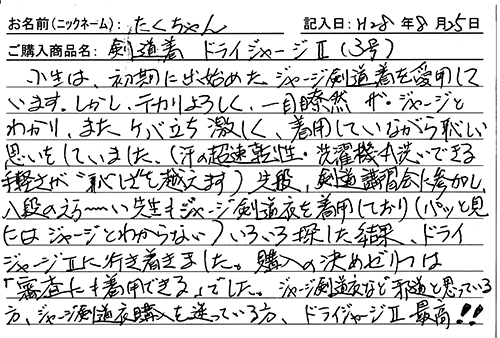 お名前(ニックネーム): たくちゃん 記入日: H28 年 8 月 25 日
ご購入商品名: 剣道着 ドライジャージⅡ (3号)
小生は、初期に出始めたジャージ剣道着を愛用して
います。しかし、テカリよろしく、一目瞭然 ザ・ジャージと
わかり、また ケバ立ち 激しく、着用していながら恥しい
思いをしていました。(汗の超速乾性・洗濯機丸洗いできる
手軽さが“恥しさ”を越えます) 先般、剣道講習会に参加し、
八段のえら〜い先生もジャージ剣道衣を着用しており(パッと見
にはジャージとわからない) いろいろ探した結果、ドライ
ジャージⅡに行き着きました。購入の決めどころは
「審査にも着用できる」でした。ジャージ剣道衣など邪道と思っている
方、ジャージ剣道衣購入を迷っている方、ドライジャージⅡ 最高!!